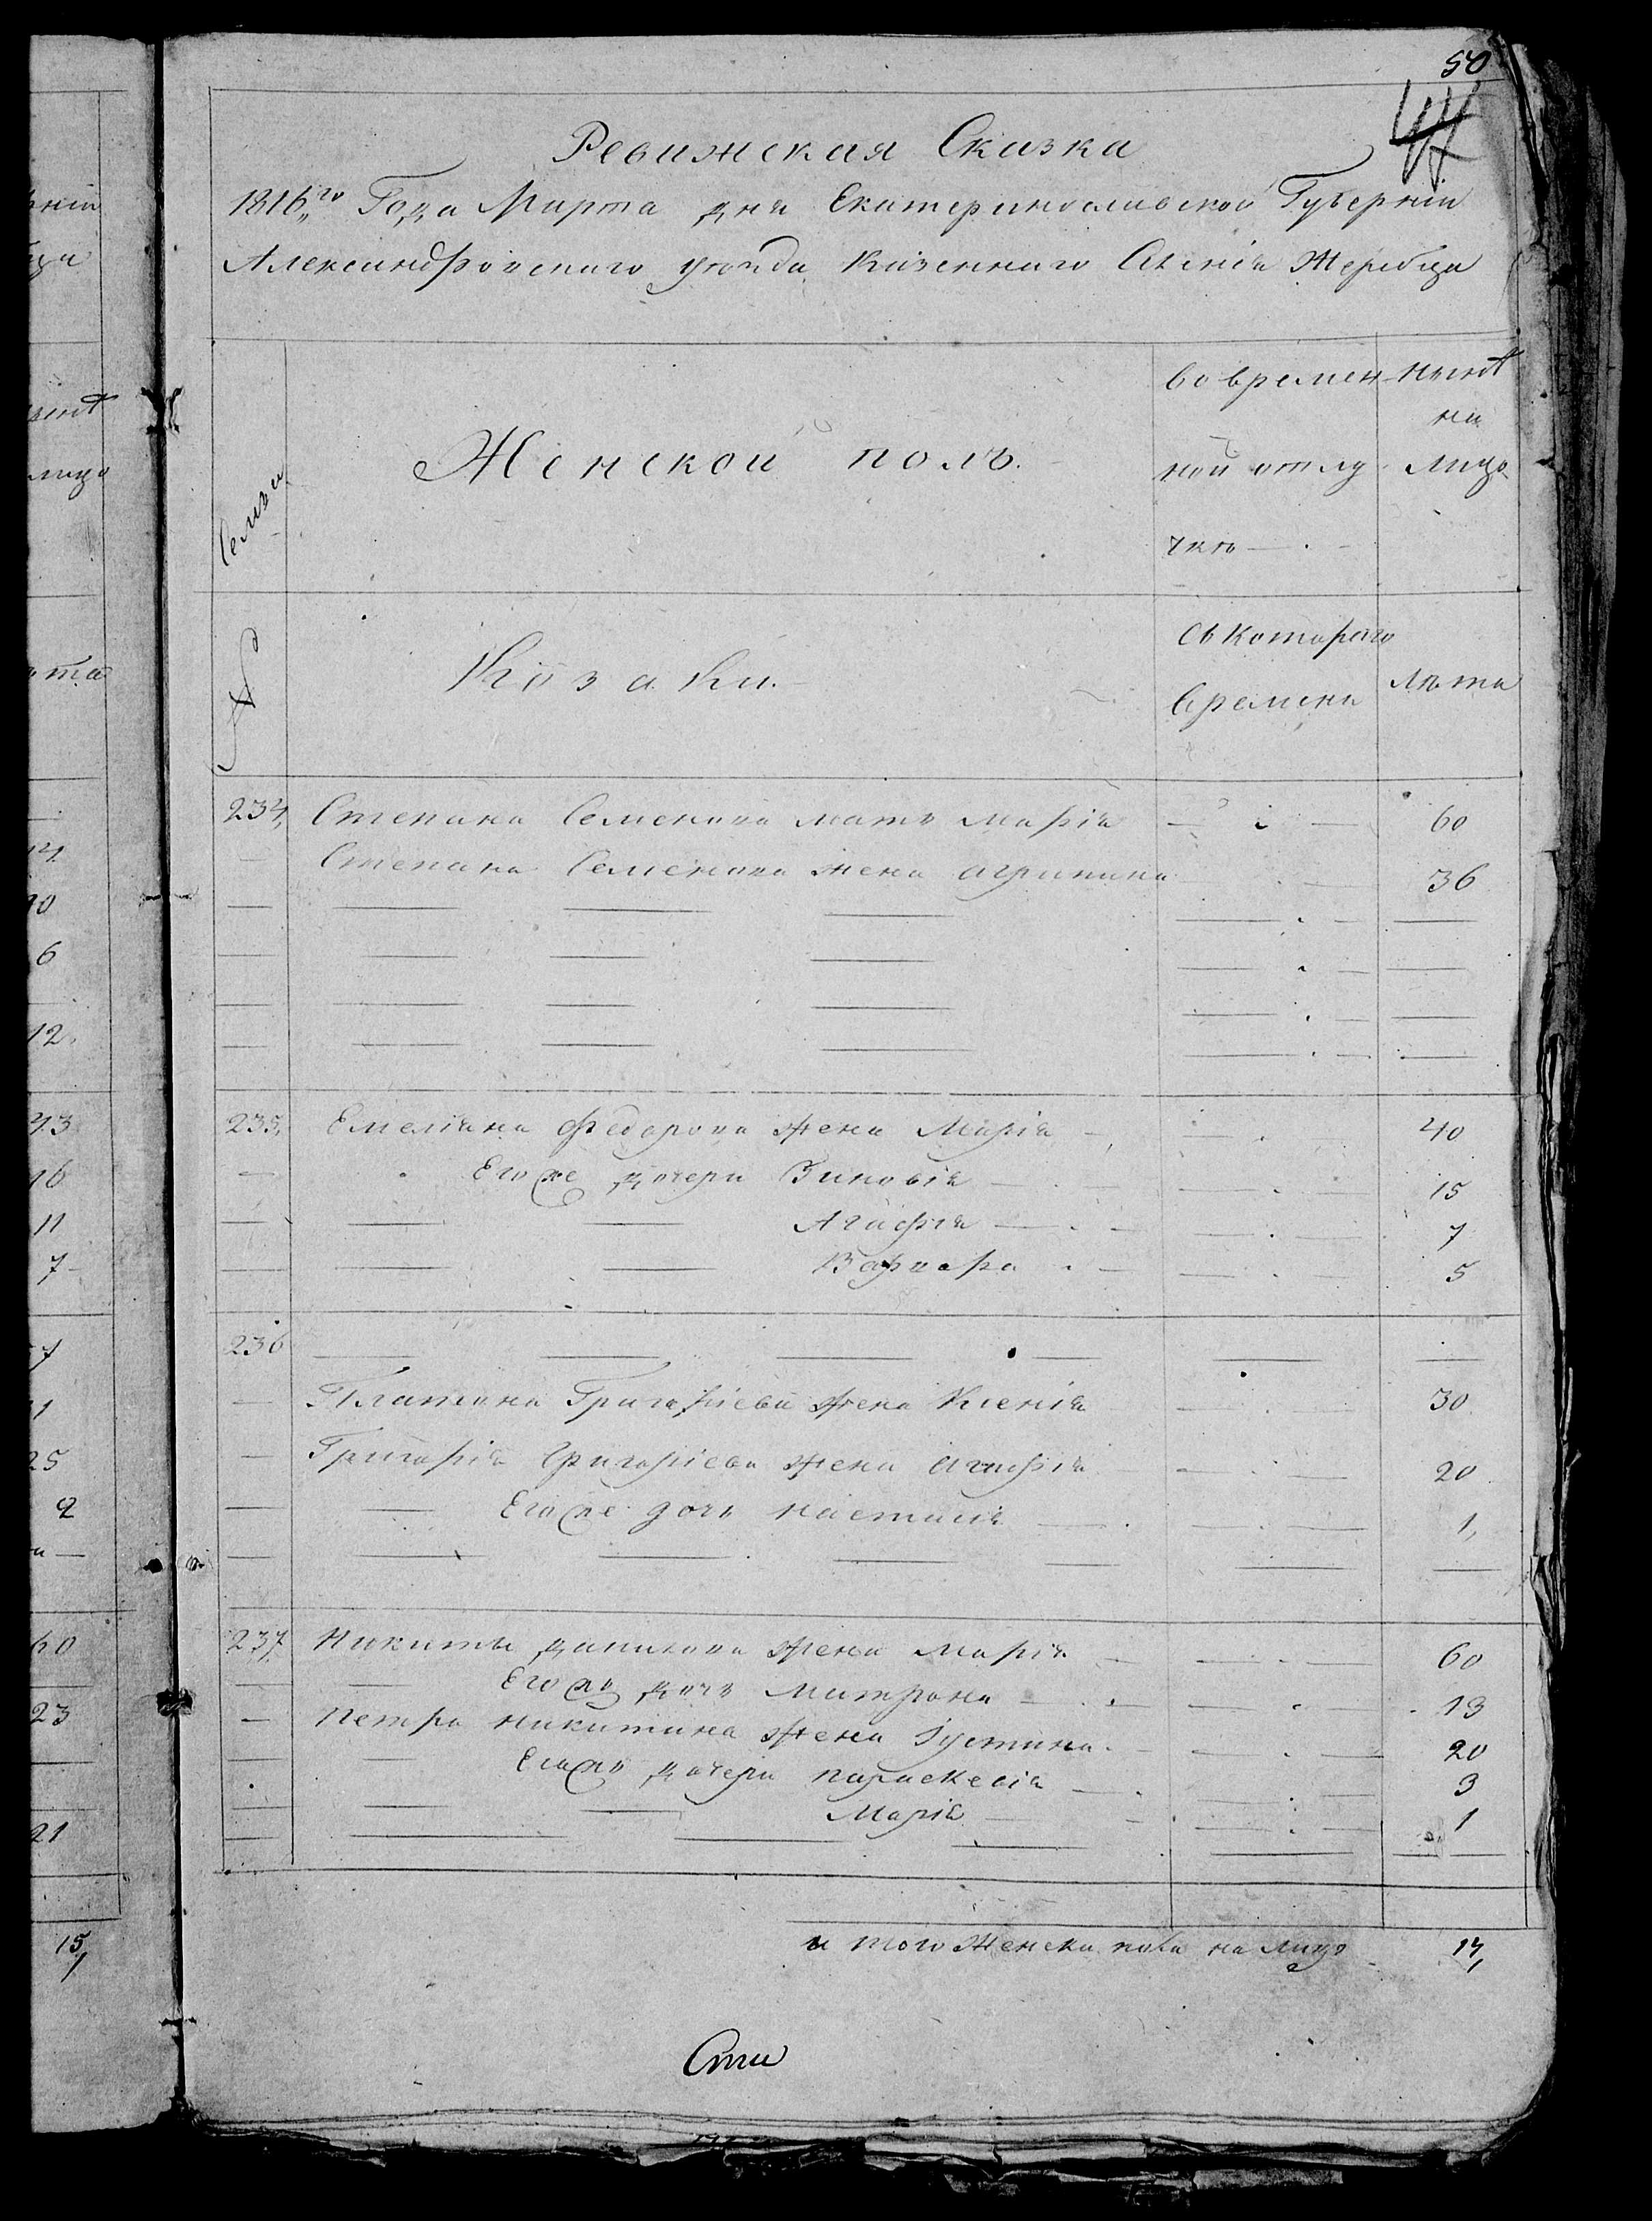 50
44
Ревижская Сказка
1816го Года Марта дня Екатеринославской Губерніи
Александровского уезда Казенного Селенія Жеребца
Семьи
Женской полъ.
во времен
ной отлу
чке
ныне
на
лицо
№
Козаки.
Съ Которого
времени
Лета
234, Степана Семенова мать Марія 60
Степана Семенова жена Агрипина 36
235, Емеліана Федорова жена Марія 40
Егоже дочери Зиновія 15
Агафія 7
Варвара 5
236
Платона Григоріева жена Ксенія 30
Григорія Григоріева жена Агафія 20
Егоже дочь Настасія 1,
237, Никиты Данилова жена Марія 60
Егожъ дочь Матрона 13
Петра Никитина жена Iустина 20
Егожъ дочери Параскевія 3
Марія 1
и того Женска пола на лицо 14,
Ста
ній
ца
лицо
ета
6
12
43
16
11
7
25
2
60
23
21
15,